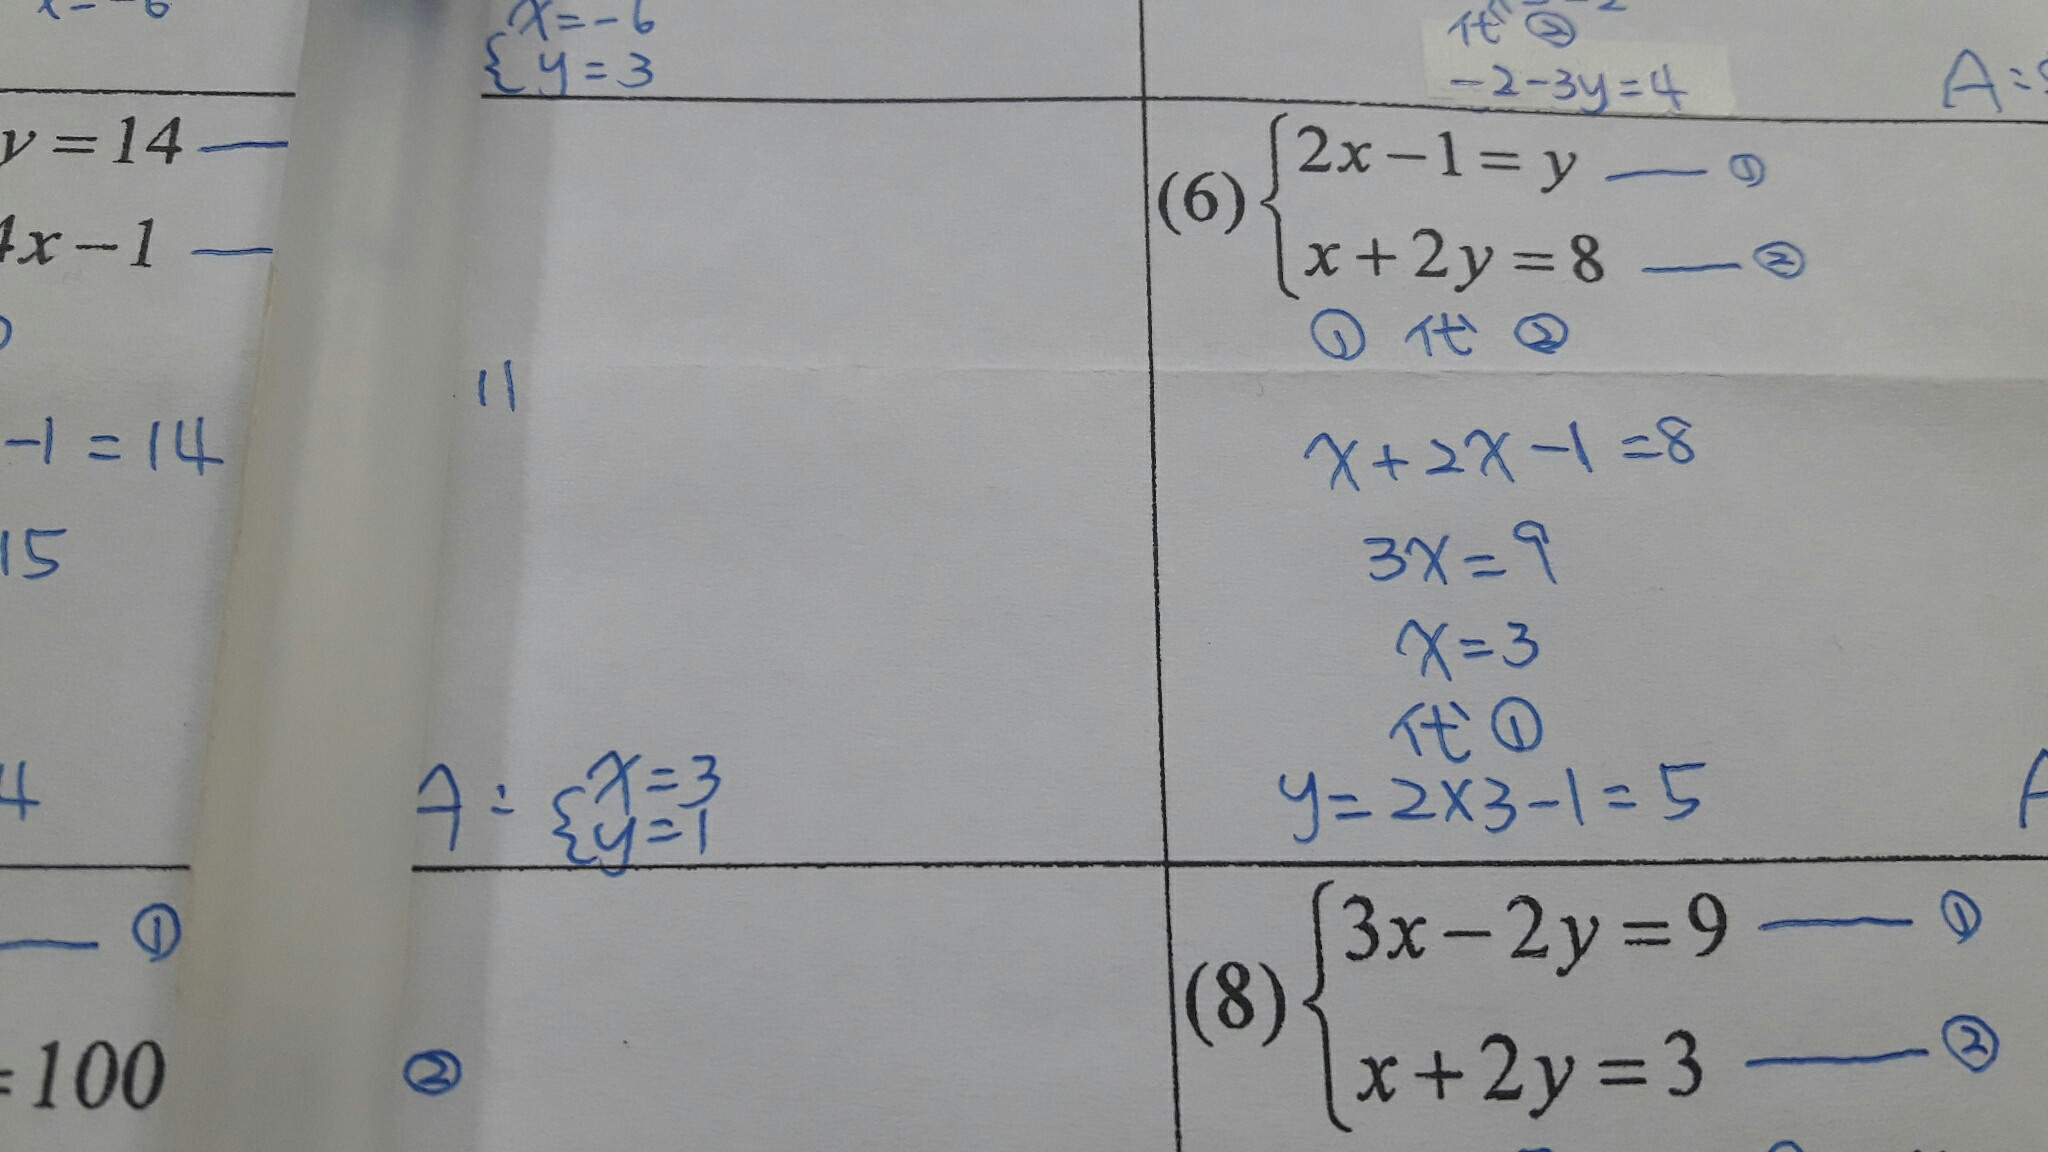 x=-6
{ y=3
代②
-2-3y=4
y=14 ——
4x-1 ——
-1=14
15
4
11
A: { x=3
y=1
(6) { 2x-1=y —— ①
x+2y=8 —— ②
① 代 ②
x+2x-1=8
3x=9
x=3
代①
y=2×3-1=5
—— ①
=100 ②
(8) { 3x-2y=9 —— ①
x+2y=3 —— ②